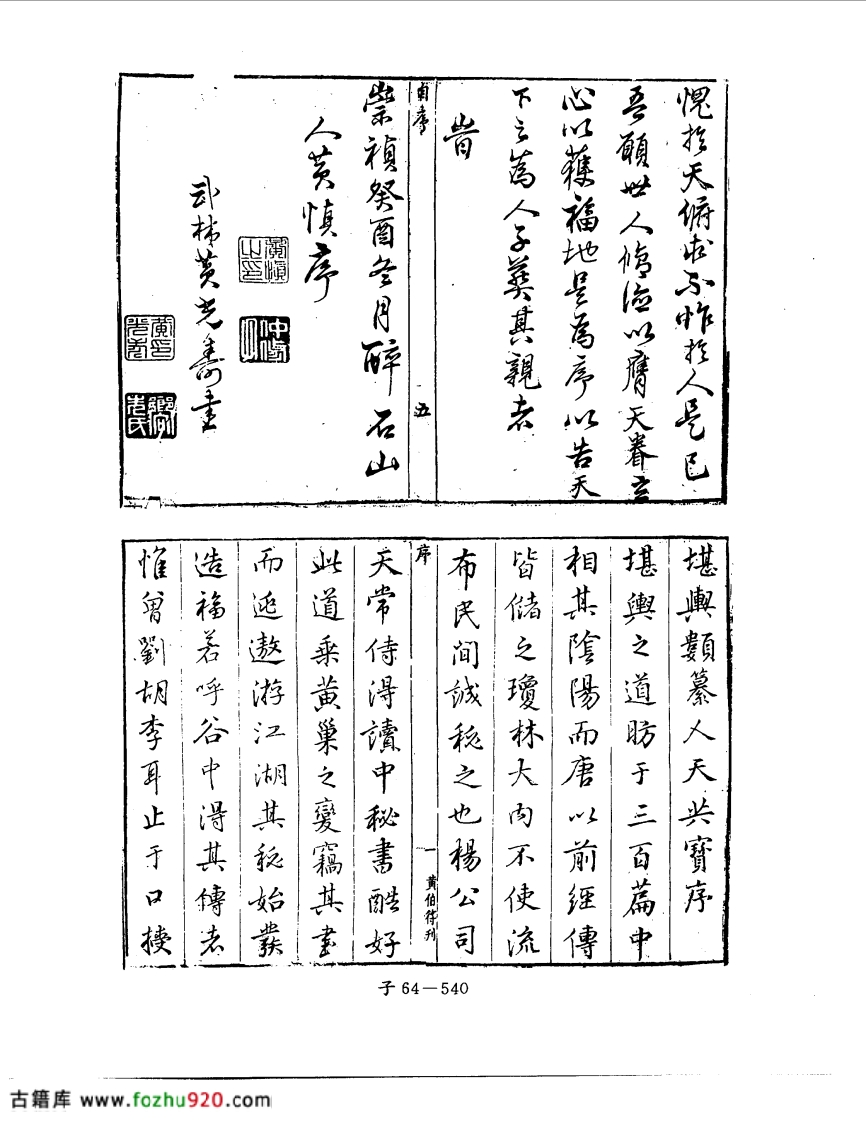 愧於天俯求不怍於人是已
吾願世人脩德以膺天眷立
心以獲福地是為序以告天
下之為人子葬其親者
旹
自序
五
崇禎癸酉冬月醉石山
人黃慎序
武林黃光壽書
堪輿類纂人天共寶序
堪輿之道昉于三百篇中
相其陰陽而唐以前經傳
皆儲之瓊林大內不使流
布民間誠秘之也楊公司
序
一
黃伯符刊
天常侍得讀中秘書酷好
此道乘黃巢之變竊其書
而逃遨游江湖其秘始發
造福若呼谷中得其傳者
惟曾劉胡李耳止于口授
子 64－540
古籍库 www.fozhu920.com